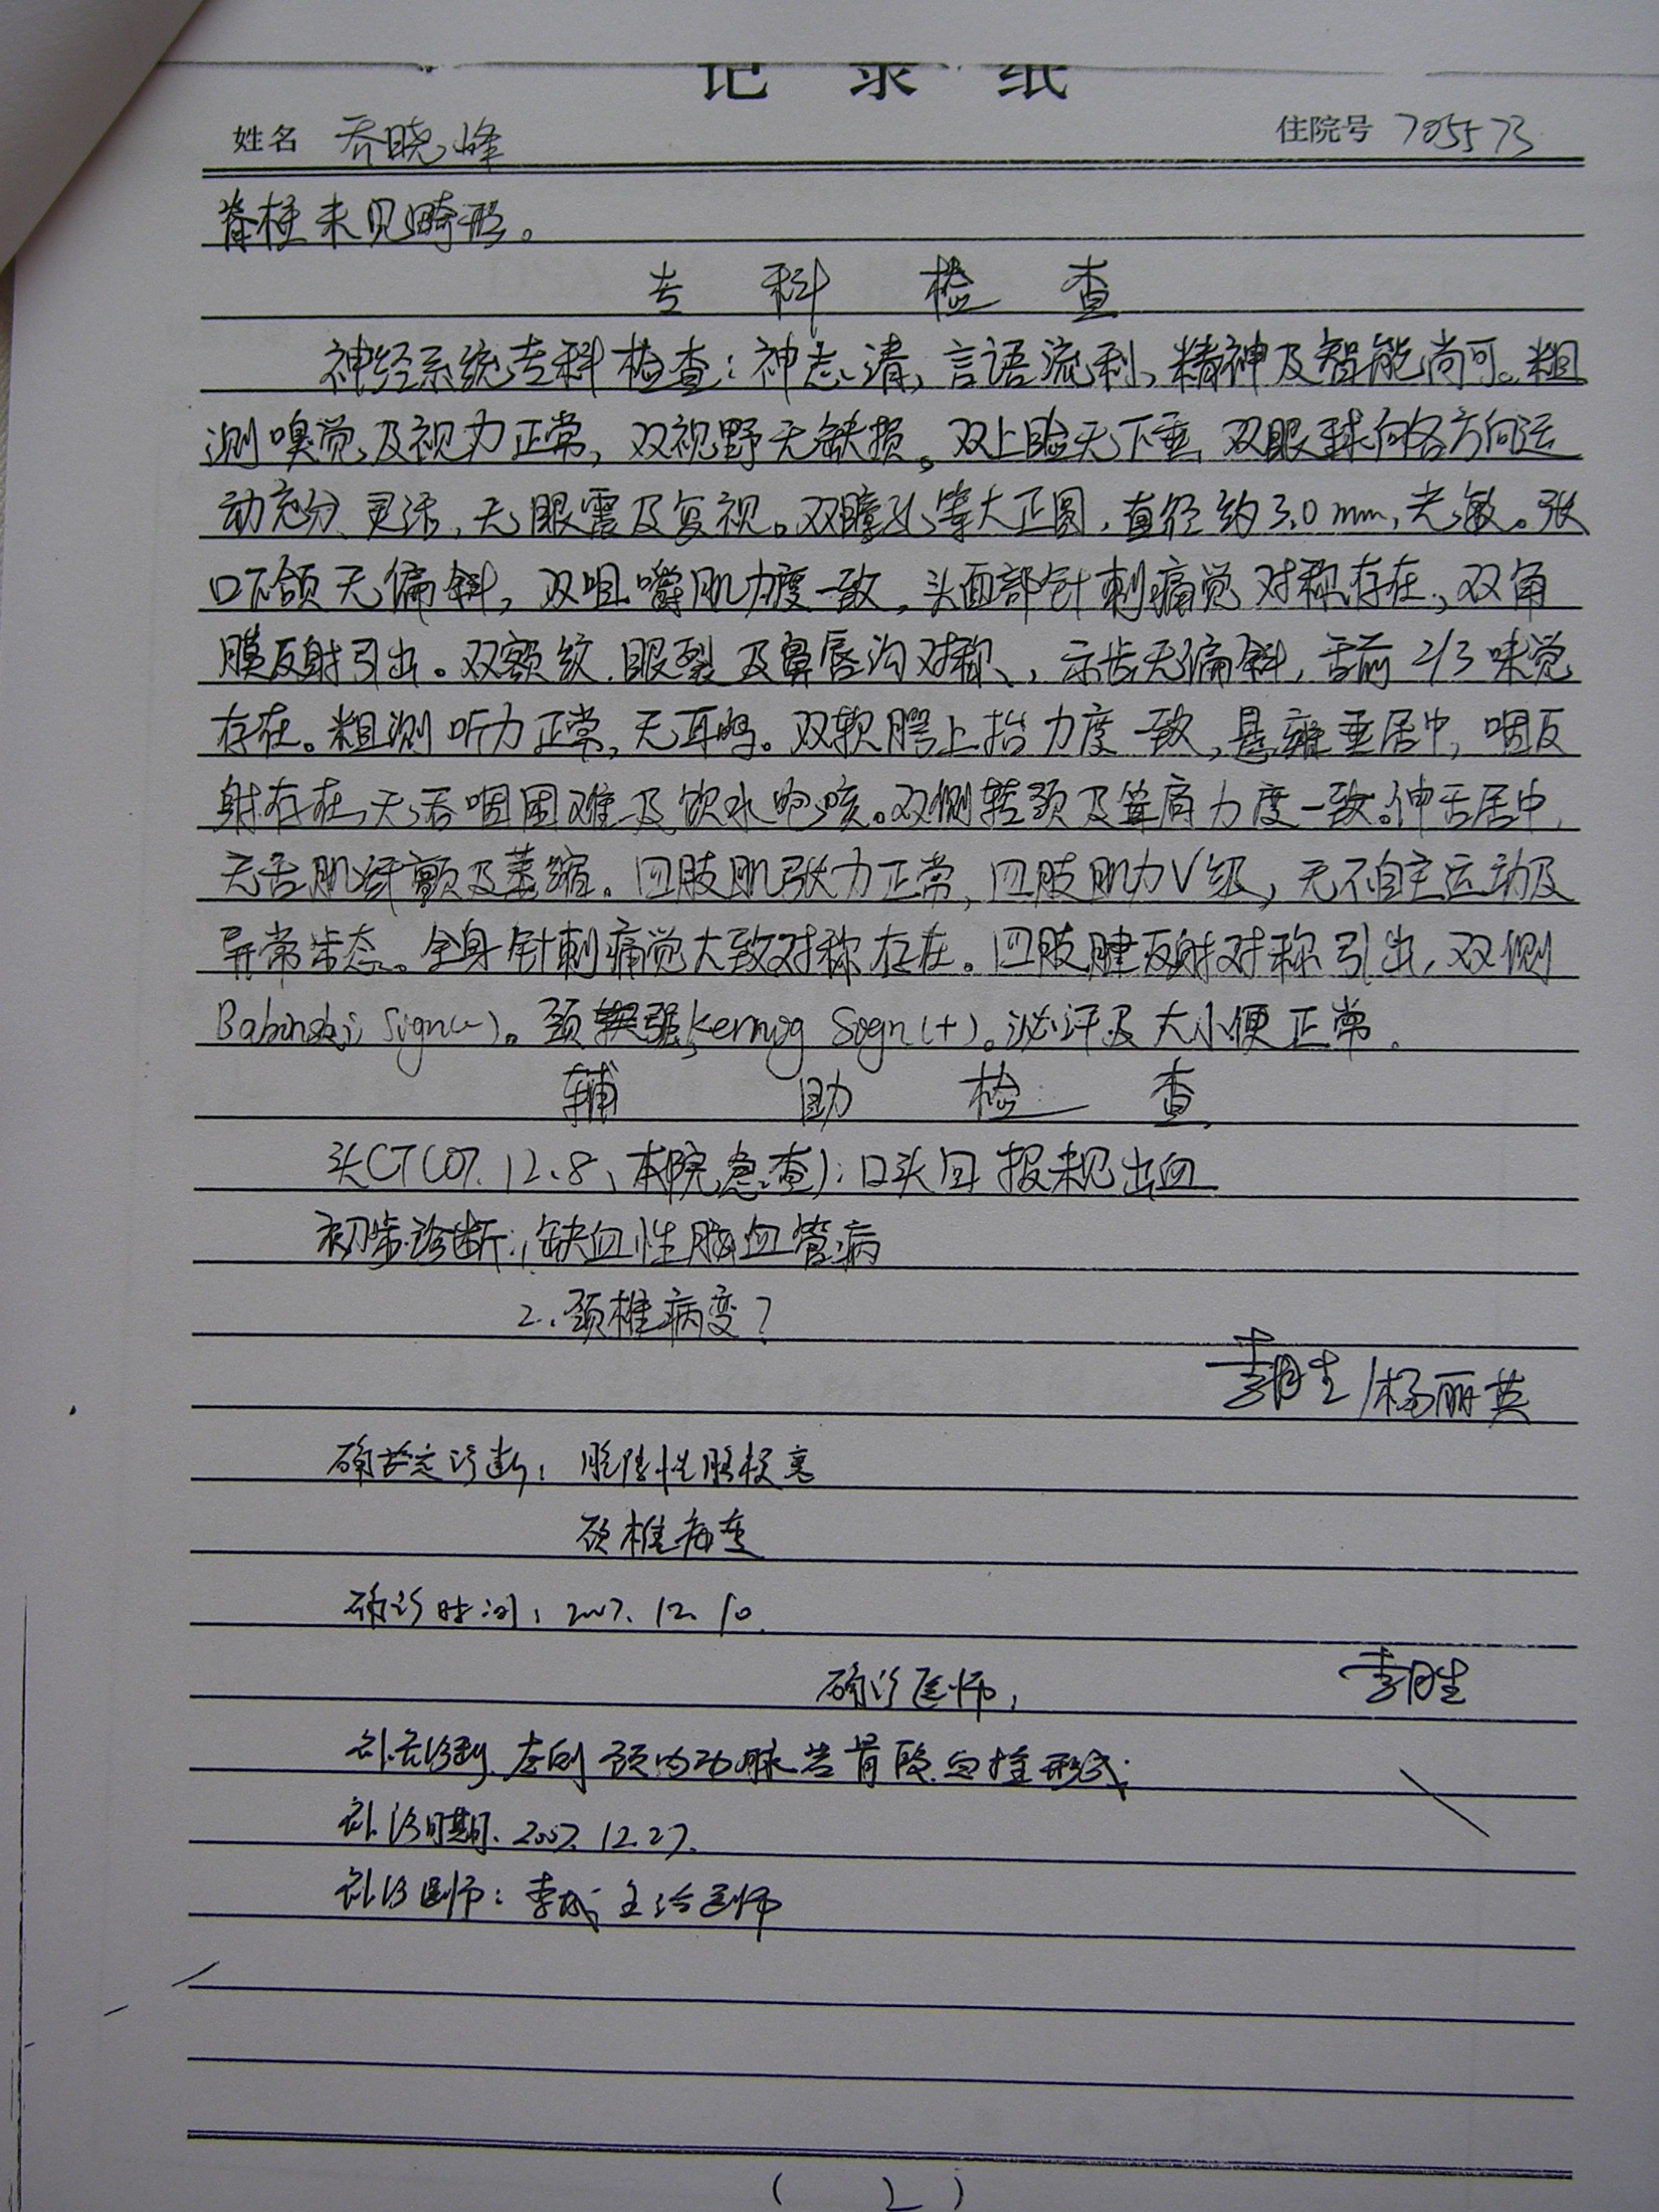 记录纸
姓名 乔晓峰 住院号 705573
脊柱未见畸形。
专科检查
神经系统专科检查：神志清，言语流利，精神及智能尚可。粗
测嗅觉及视力正常，双视野无缺损。双上睑无下垂，双眼球向各方向运
动充分、灵活，无眼震及复视。双瞳孔等大正圆，直径约3.0mm，光敏。张
口下颌无偏斜，双咀嚼肌力度一致，头面部针刺痛觉对称存在，双角
膜反射引出。双额纹、眼裂及鼻唇沟对称、，示齿无偏斜，舌前2/3味觉
存在。粗测听力正常，无耳鸣。双软腭上抬力度一致，悬雍垂居中，咽反
射存在，无吞咽困难及饮水呛咳。双侧转颈及耸肩力度一致。伸舌居中，
无舌肌纤颤及萎缩。四肢肌张力正常，四肢肌力V级，无不自主运动及
异常步态。全身针刺痛觉大致对称存在。四肢腱反射对称引出，双侧
Babinski Sign(-)。颈强，Kernig Sign(+)。泌汗及大小便正常。
辅助检查
头CT(07.12.8、本院急查)：口头回报未见出血
初步诊断：1.缺血性脑血管病
2.颈椎病变？
李胜 /杨丽英
确定诊断：腔隙性脑梗塞
颈椎病变
确诊时间：2007.12.10.
确诊医师： 李胜
补充诊断 左侧颈内动脉岩骨段血栓形成
补诊日期.2007.12.27.
补诊医师：李成 主治医师
(2)